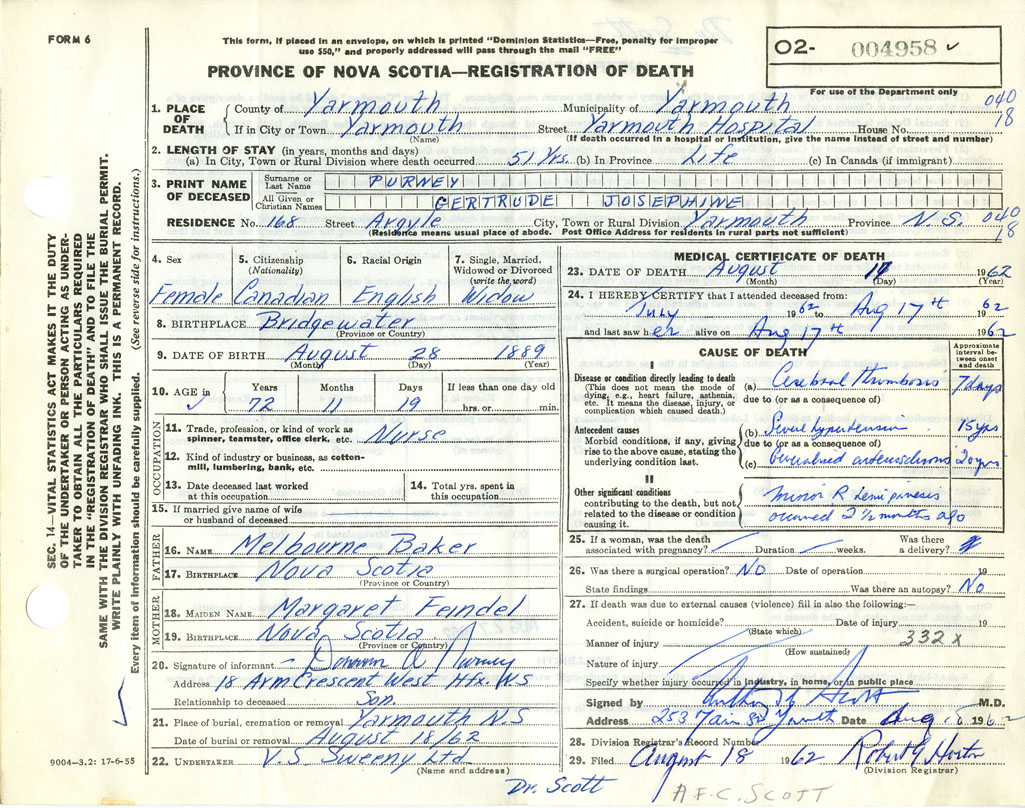 FORM 6
This form, if placed in an envelope, on which is printed "Dominion Statistics—Free, penalty for improper
use $50," and properly addressed will pass through the mail "FREE"
PROVINCE OF NOVA SCOTIA—REGISTRATION OF DEATH
O2- 004958 ✓
For use of the Department only
SEC. 14—VITAL STATISTICS ACT MAKES IT THE DUTY
OF THE UNDERTAKER OR PERSON ACTING AS UNDER-
TAKER TO OBTAIN ALL THE PARTICULARS REQUIRED
IN THE "REGISTRATION OF DEATH" AND TO FILE THE
SAME WITH THE DIVISION REGISTRAR WHO SHALL ISSUE THE BURIAL PERMIT.
WRITE PLAINLY WITH UNFADING INK. THIS IS A PERMANENT RECORD.
Every item of information should be carefully supplied. (See reverse side for instructions.)
1. PLACE OF DEATH
County of Yarmouth Municipality of Yarmouth 040
If in City or Town Yarmouth Street Yarmouth Hospital House No. 18
(Name) (If death occurred in a hospital or institution, give the name instead of street and number)
2. LENGTH OF STAY (in years, months and days)
(a) In City, Town or Rural Division where death occurred 51 Yrs. (b) In Province Life (c) In Canada (if immigrant)
3. PRINT NAME OF DECEASED
Surname or Last Name PURNEY
All Given or Christian Names GERTRUDE JOSEPHINE
RESIDENCE No. 168 Street Argyle City, Town or Rural Division Yarmouth Province N.S. 040
18
(Residence means usual place of abode. Post Office Address for residents in rural parts not sufficient)
4. Sex
Female
5. Citizenship (Nationality)
Canadian
6. Racial Origin
English
7. Single, Married, Widowed or Divorced (write the word)
Widow
8. BIRTHPLACE Bridgewater
(Province or Country)
9. DATE OF BIRTH August 28 1889
(Month) (Day) (Year)
10. AGE in Years Months Days If less than one day old
✓ 72 11 19 hrs. or min.
OCCUPATION
11. Trade, profession, or kind of work as
spinner, teamster, office clerk, etc. Nurse
12. Kind of industry or business, as cotton-
mill, lumbering, bank, etc.
13. Date deceased last worked
at this occupation
14. Total yrs. spent in
this occupation
15. If married give name of wife
or husband of deceased
FATHER
16. NAME Melbourne Baker
17. BIRTHPLACE Nova Scotia
(Province or Country)
MOTHER
18. MAIDEN NAME Margaret Feindel
19. BIRTHPLACE Nova Scotia
(Province or Country)
20. Signature of informant A Purney
Address 18 Arm Crescent West Hfx. NS
Relationship to deceased Son.
21. Place of burial, cremation or removal Yarmouth N.S
Date of burial or removal August 18/62
22. UNDERTAKER V.S Sweeny Ltd
(Name and address)
9004—3.2: 17-6-55
MEDICAL CERTIFICATE OF DEATH
23. DATE OF DEATH August 17 1962
(Month) (Day) (Year)
24. I HEREBY CERTIFY that I attended deceased from:
July 1962 to Aug 17th 1962
and last saw her alive on Aug 17th 1962
CAUSE OF DEATH
Approximate interval be-tween onset and death
I
Disease or condition directly leading to death
(This does not mean the mode of
dying, e.g., heart failure, asthenia,
etc. It means the disease, injury, or
complication which caused death.)
(a) Cerebral thrombosis 7 days
due to (or as a consequence of)
Antecedent causes
Morbid conditions, if any, giving
rise to the above cause, stating the
underlying condition last.
(b) Severe hypertension 15 yrs
due to (or as a consequence of)
(c) Generalised arteriosclerosis 20 yrs
II
Other significant conditions
contributing to the death, but not
related to the disease or condition
causing it.
minor R hemiparesis
occurred 2 1/2 months ago
25. If a woman, was the death
associated with pregnancy? Duration weeks. Was there
a delivery?
26. Was there a surgical operation? NO Date of operation 19
State findings Was there an autopsy? No
27. If death was due to external causes (violence) fill in also the following:—
Accident, suicide or homicide? Date of injury 19
(State which)
332 x
Manner of injury
(How sustained)
Nature of injury
Specify whether injury occurred in industry, in home, or in public place
Signed by Anthony Scott M.D.
Address 253 Main St Date Aug. 1962
28. Division Registrar's Record Number
29. Filed August 18 1962 Robert G Horton
(Division Registrar)
Dr. Scott
A F.C. SCOTT